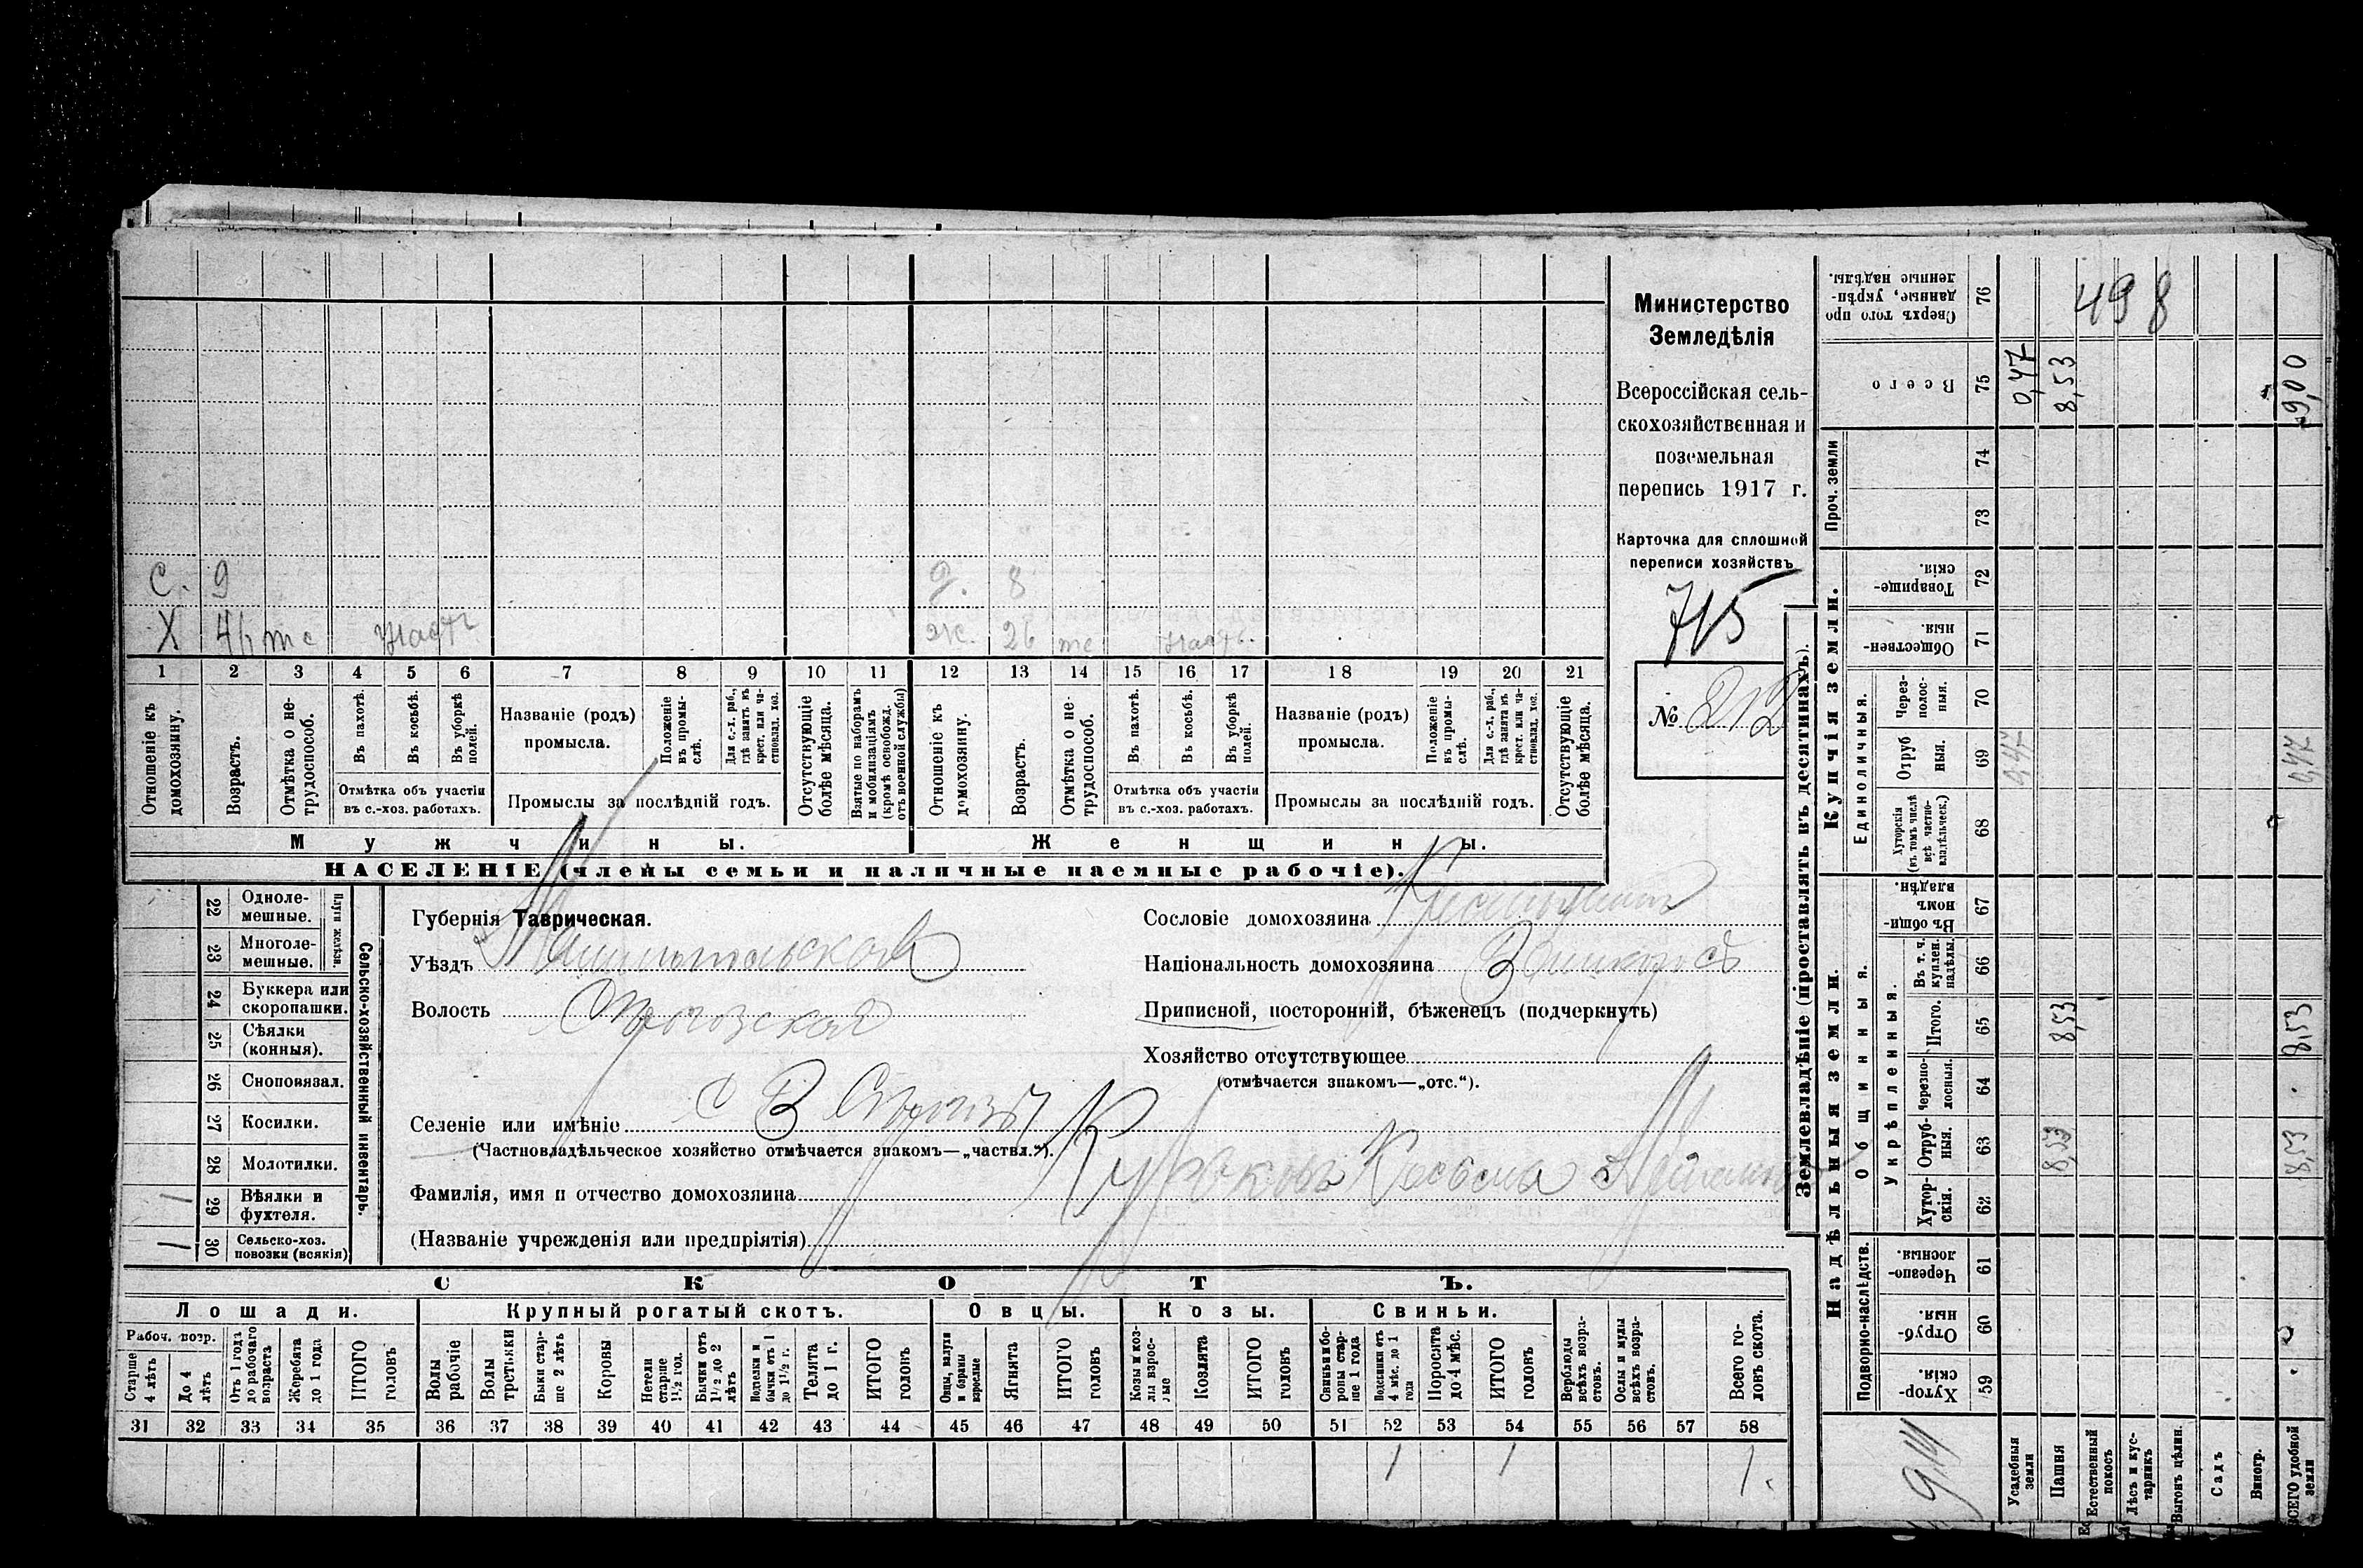 С. 9 д. 8
Х 46 тс Часть Ж. 26 тс Часть
1 2 3 4 5 6 7 8 9 10 11 12 13 14 15 16 17 18 19 20 21
Отношеніе къ домохозяину.
Возрастъ.
Отмѣтка о нетрудоспособ.
Въ пахотѣ.
Въ косьбѣ.
Въ уборкѣ полей.
Отмѣтка объ участіи
въ с.-хоз. работахъ.
Названіе (родъ)
промысла.
Положеніе въ промыслѣ.
Для с.-х. раб., гдѣ занятъ въ крест. или частновлад. хоз.
Промыслы за послѣдній годъ.
Отсутствующіе болѣе мѣсяца.
Взятые по наборамъ и мобилизаціямъ (кромѣ освобожд. отъ военной службы)
Отношеніе къ домохозяину.
Возрастъ.
Отмѣтка о нетрудоспособ.
Въ пахотѣ.
Въ косьбѣ.
Въ уборкѣ полей.
Отмѣтка объ участіи
въ с.-хоз. работахъ.
Названіе (родъ)
промысла.
Положеніе въ промыслѣ.
Для с.-х. раб., гдѣ занята въ крест. или частновлад. хоз.
Промыслы за послѣдній годъ.
Отсутствующіе болѣе мѣсяца.
Мужчины. Женщины.
НАСЕЛЕНІЕ (члены семьи и наличные наемные рабочіе).
Министерство
Земледѣлія
Всероссійская сель-
скохозяйственная и
поземельная
перепись 1917 г.
Карточка для сплошной
переписи хозяйствъ
715
№ 212
22 Однолемешные.
23 Многолемешные.
Плуги желѣзн.
24 Буккера или скоропашки.
25 Сѣялки (конныя).
26 Сноповязал.
27 Косилки.
28 Молотилки.
1 29 Вѣялки и фухтеля.
1 30 Сельско-хоз. повозки (всякія)
Сельско-хозяйственный инвентарь.
Губернія Таврическая.
Уѣздъ
Волость
Селеніе или имѣніе С В
(Частновладѣльческое хозяйство отмѣчается знакомъ—„частвл.“).
Фамилія, имя и отчество домохозяина
(Названіе учрежденія или предпріятія)
Сословіе домохозяина
Національность домохозяина
Приписной, посторонній, бѣженецъ (подчеркнуть)
Хозяйство отсутствующее
(отмѣчается знакомъ—„отс.“).
СКОТЪ.
Лошади. Крупный рогатый скотъ. Овцы. Козы. Свиньи.
Рабоч. возр.
Старше 4 лѣтъ
До 4 лѣтъ
Отъ 1 года до рабочаго возраста
Жеребята до 1 года
ИТОГО головъ
Волы рабочіе
Волы третьяки
Быки старше 2 лѣтъ
Коровы
Нетели старше 1½ год.
Бычки отъ 1½ до 2 лѣтъ
Телята до 1 г.
ИТОГО головъ
Ягнята
ИТОГО головъ
Козы и козлы взрослые
Козлята
ИТОГО головъ
Свиньи и боровы старше 1 года
Подсвинки отъ 4 мѣс. до 1 года
Поросята до 4 мѣс.
ИТОГО головъ
Верблюды всѣхъ возрастовъ.
Ослы и мулы всѣхъ возрастовъ.
Всего головъ скота.
31 32 33 34 35 36 37 38 39 40 41 42 43 44 45 46 47 48 49 50 51 52 53 54 55 56 57 58
1 1 1.
Землевладѣніе (проставлять въ десятинахъ).
Купчія земли.
Надѣльныя земли.
Проч. земли
Единоличныя.
Общинныя.
Укрѣпленныя.
Подворно-наслѣдств.
76 498
Всего 75 0,47 8,53 9,00
74
73
Товарищескія. 72
Общественныя 71
Черезполосныя. 70
Отрубныя. 69 0,47 0,47
Хуторскія (въ томъ числѣ всѣ частновладѣльческ.) 68
Въ общинномъ владѣн. 67
Въ т. ч. куплен. надѣлы. 66
Итого. 65 8,53 8,53
Черезполосныя. 64
Отрубныя. 63 8,53 8,53
Хуторскія. 62
Черезполосныя. 61
Отрубныя. 60
Хуторскія. 59
Усадебныя земли
Пашня
Естественный покосъ
Лѣсъ и кустарникъ
Выгонъ цѣлин.
Садъ
Виногр.
ВСЕГО удобной земли